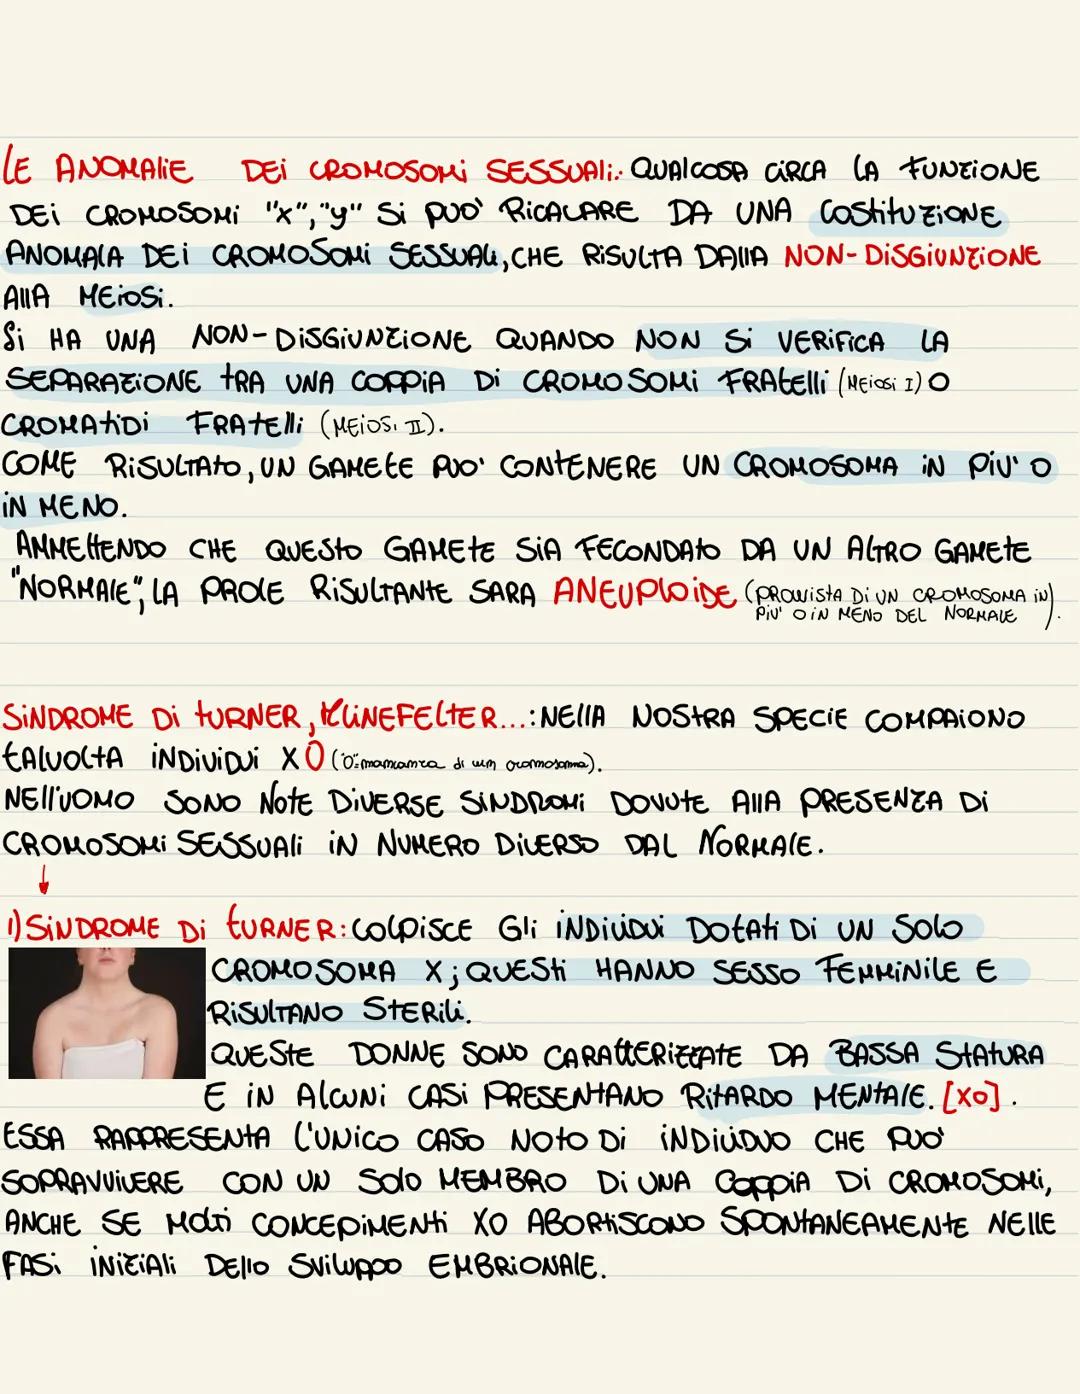 LE ANOMALIE DEI CROMOSOMI SESSUALI: QUALCOSA CIRCA LA FUNZIONE
DEI CROMOSOMI "X","Y" SI PUO' RICALARE DA UNA COSTITUZIONE
ANOMALA DEI CROMOSOMI SESSUALI, CHE RISULTA DALLA NON-DISGIUNZIONE
ALLA MEIOSI.
SI HA UNA NON-DISGIUNZIONE QUANDO NON SI VERIFICA LA
SEPARAZIONE TRA UNA COPPIA DI CROMOSOMI FRATELLI (MEIOSI I) O
CROMATIDI FRATELLI (MEIOSI II).
COME RISULTATO, UN GAMETE PUO' CONTENERE UN CROMOSOMA IN PIU' O
IN MENO.
AMMETTENDO CHE QUESTO GAMETE SIA FECONDATO DA UN ALTRO GAMETE
"NORMALE", LA PROLE RISULTANTE SARA ANEUPLOIDE (PROVVISTA DI UN CROMOSOMA IN
PIU' O IN MENO DEL NORMALE).
SINDROME DI TURNER, KLINEFELTER...: NELLA NOSTRA SPECIE COMPAIONO
TALVOLTA INDIVIDUI XO ("O"=mancanza di un cromosoma).
NELL'UOMO SONO NOTE DIVERSE SINDROMI DOVUTE ALLA PRESENZA DI
CROMOSOMI SESSUALI IN NUMERO DIVERSO DAL NORMALE.
↓
1) SINDROME DI TURNER: COLPISCE GLI INDIVIDUI DOTATI DI UN SOLO
CROMOSOMA X; QUESTI HANNO SESSO FEMMINILE E
RISULTANO STERILI.
QUESTE DONNE SONO CARATTERIZZATE DA BASSA STATURA
E IN ALCUNI CASI PRESENTANO RITARDO MENTALE. [XO].
ESSA RAPPRESENTA L'UNICO CASO NOTO DI INDIVIDUO CHE PUO'
SOPRAVVIVERE CON UN SOLO MEMBRO DI UNA COPPIA DI CROMOSOMI,
ANCHE SE MOLTI CONCEPIMENTI XO ABORTISCONO SPONTANEAMENTE NELLE
FASI INIZIALI DELLO SVILUPPO EMBRIONALE.